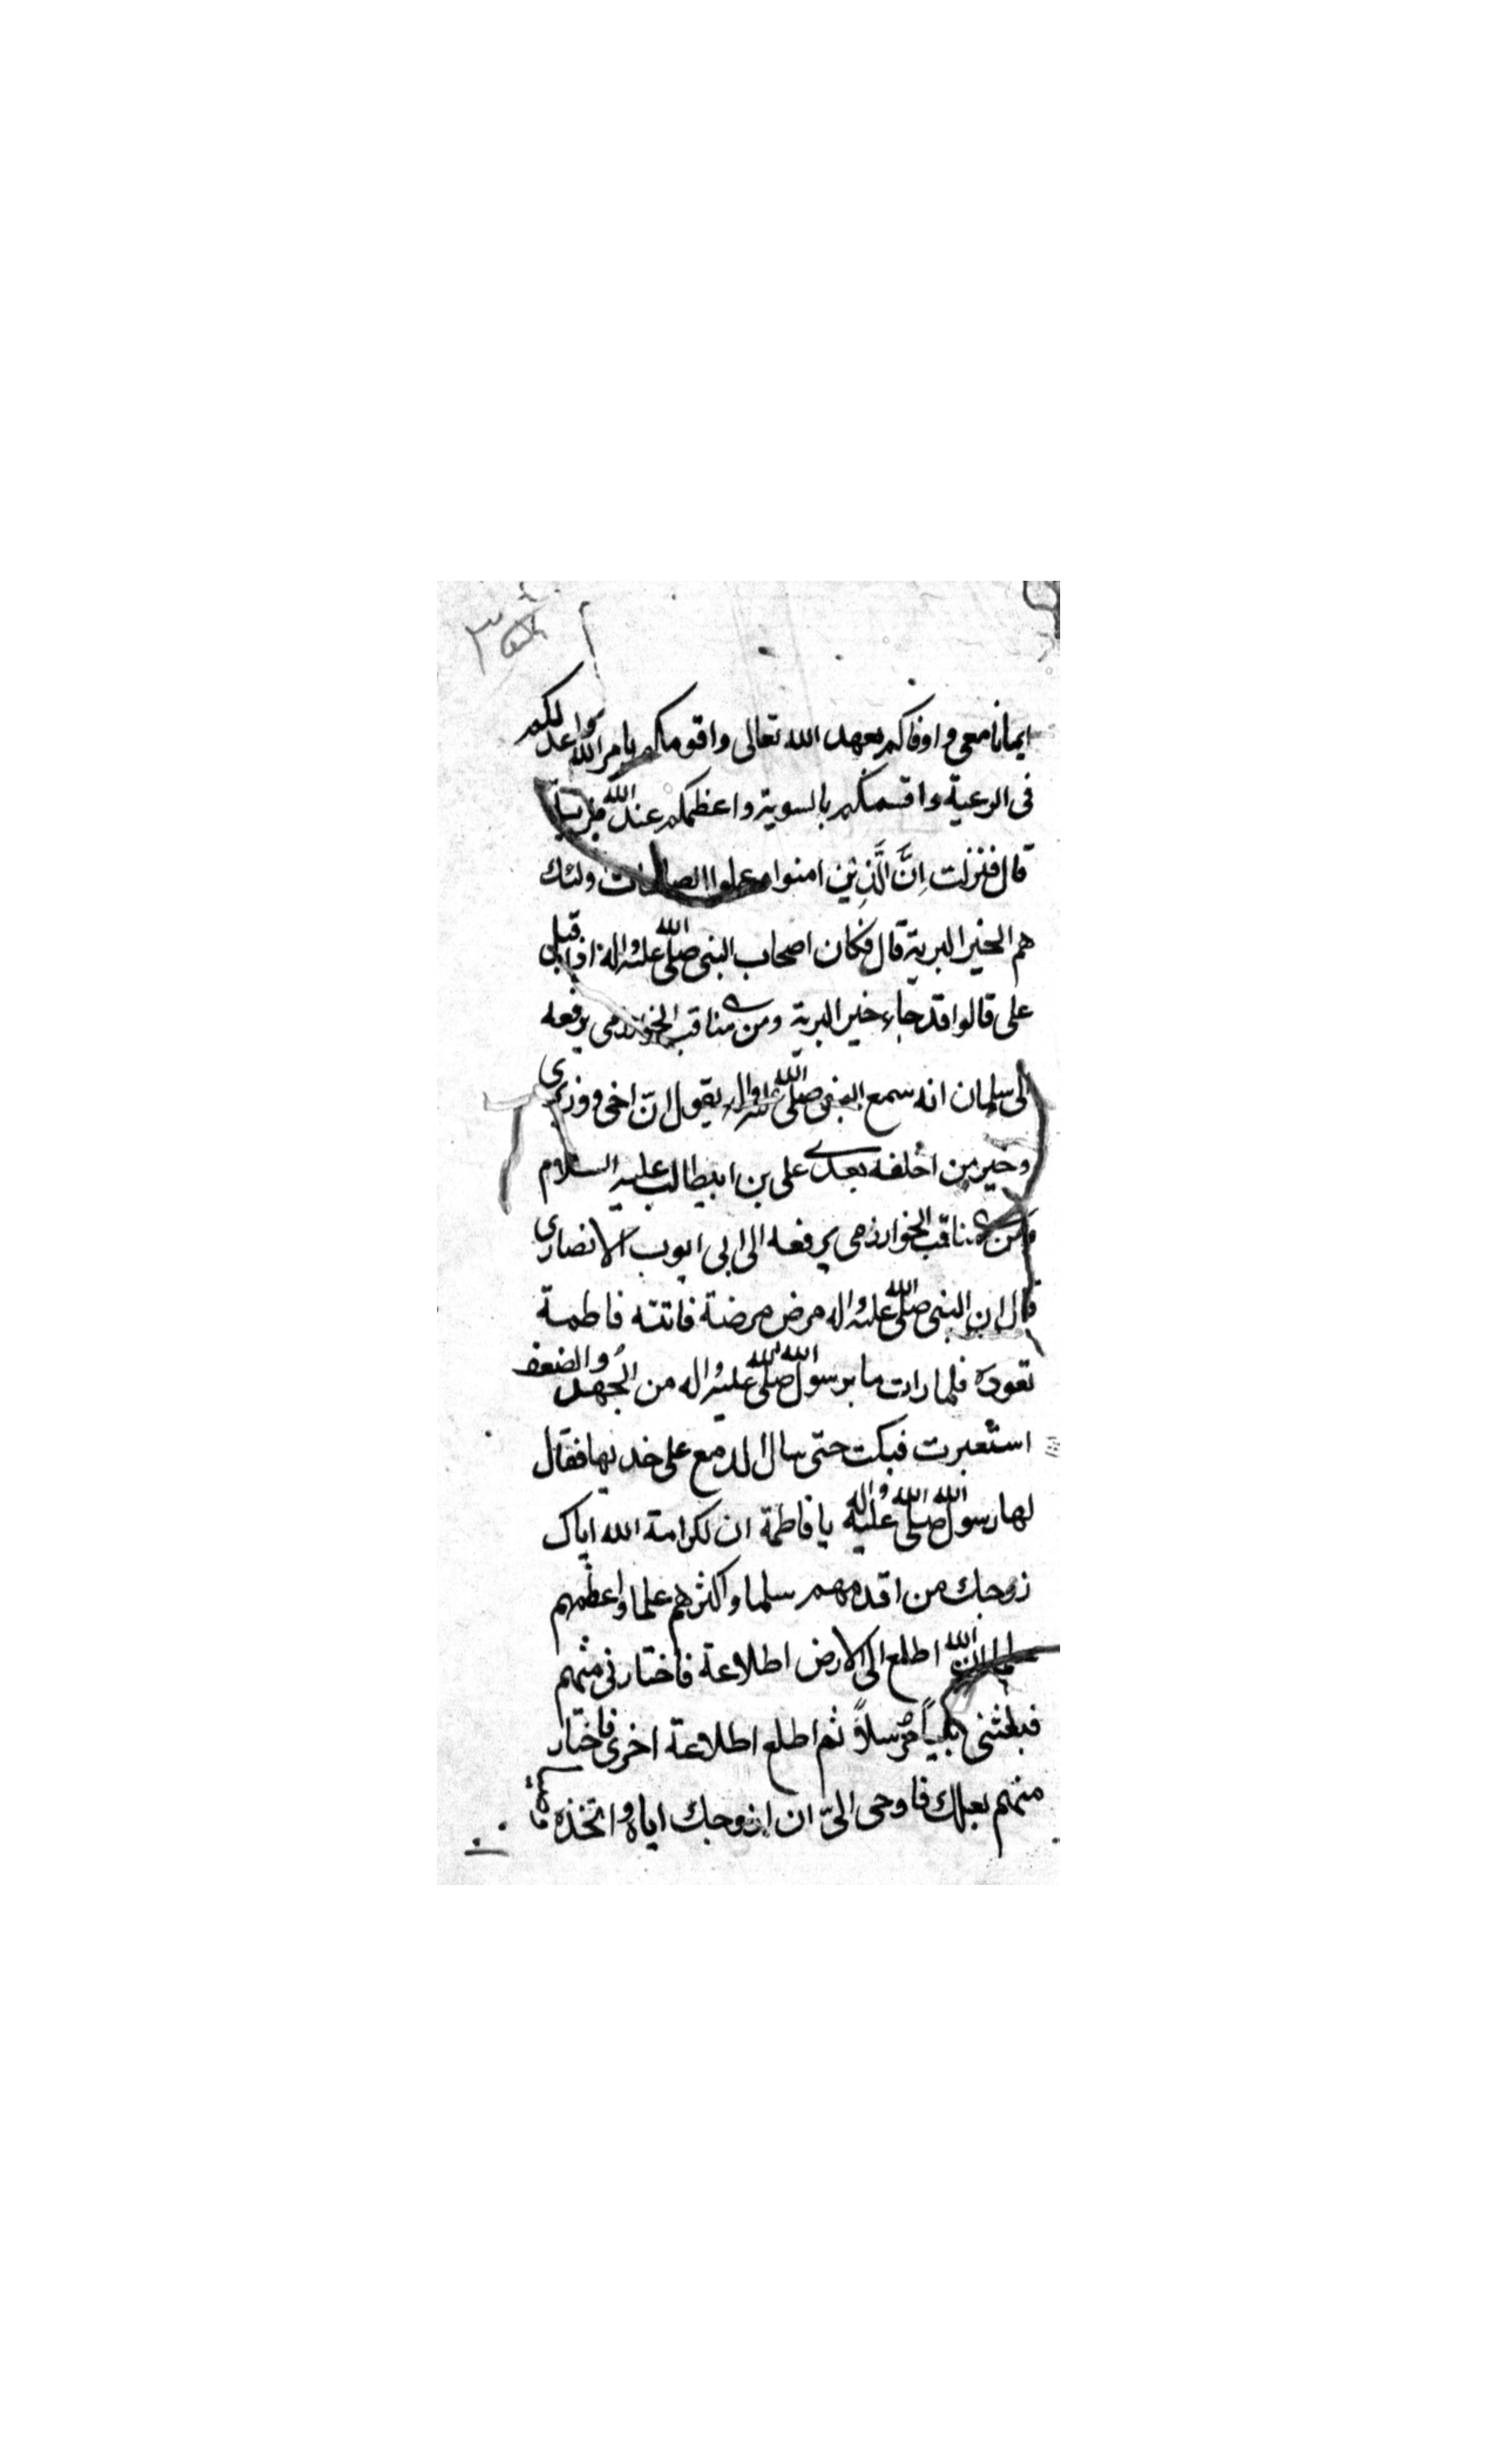 ايمانا معى واوفاكم بعهد الله تعالى واقومكم بامر الله واعدلكم
فى الرعية واقسمكم بالسوية واعظمكم عند الله مزية
قال فنزلت اِنَّ الَّذِين امنوا وعملوا الصالحات ولئك
هم الخير البرية قال فكان اصحاب النبى صلى الله عليه واله اذا اقبل
على قالوا قد جاء خير البرية ومن مناقب الخوارزمى يرفعه
الى سلمان انه سمع النبى صلى الله عليه واله يقول انّ اخى ووزيرى
وخير من اخلفه بعدى على بن ابيطالب عليه السلام
ومن مناقب الخوارزمى يرفعه الى ابى ايوب الانصارى
قال ان النبى صلى الله عليه واله مرض مرضة فاتته فاطمة
تعوده فلما رات ما برسول الله صلى الله عليه واله من الجُهد والضعف
استعبرت فبكت حتى سال الدمع على خديها فقال
لها رسول الله صلى الله عليه واله يا فاطمة ان لكرامة الله اياك
زوجك من اقدمهم سلما واكثرهم علما واعظمهم
حلما ان الله اطلع الى الارض اطلاعة فاختارنى منهم
فبعثنى نبياً مُرسلاً ثم اطلع اطلاعة اخرى فاختار
منهم بعلك فاوحى الىّ ان ازوجك اياه واتخذه